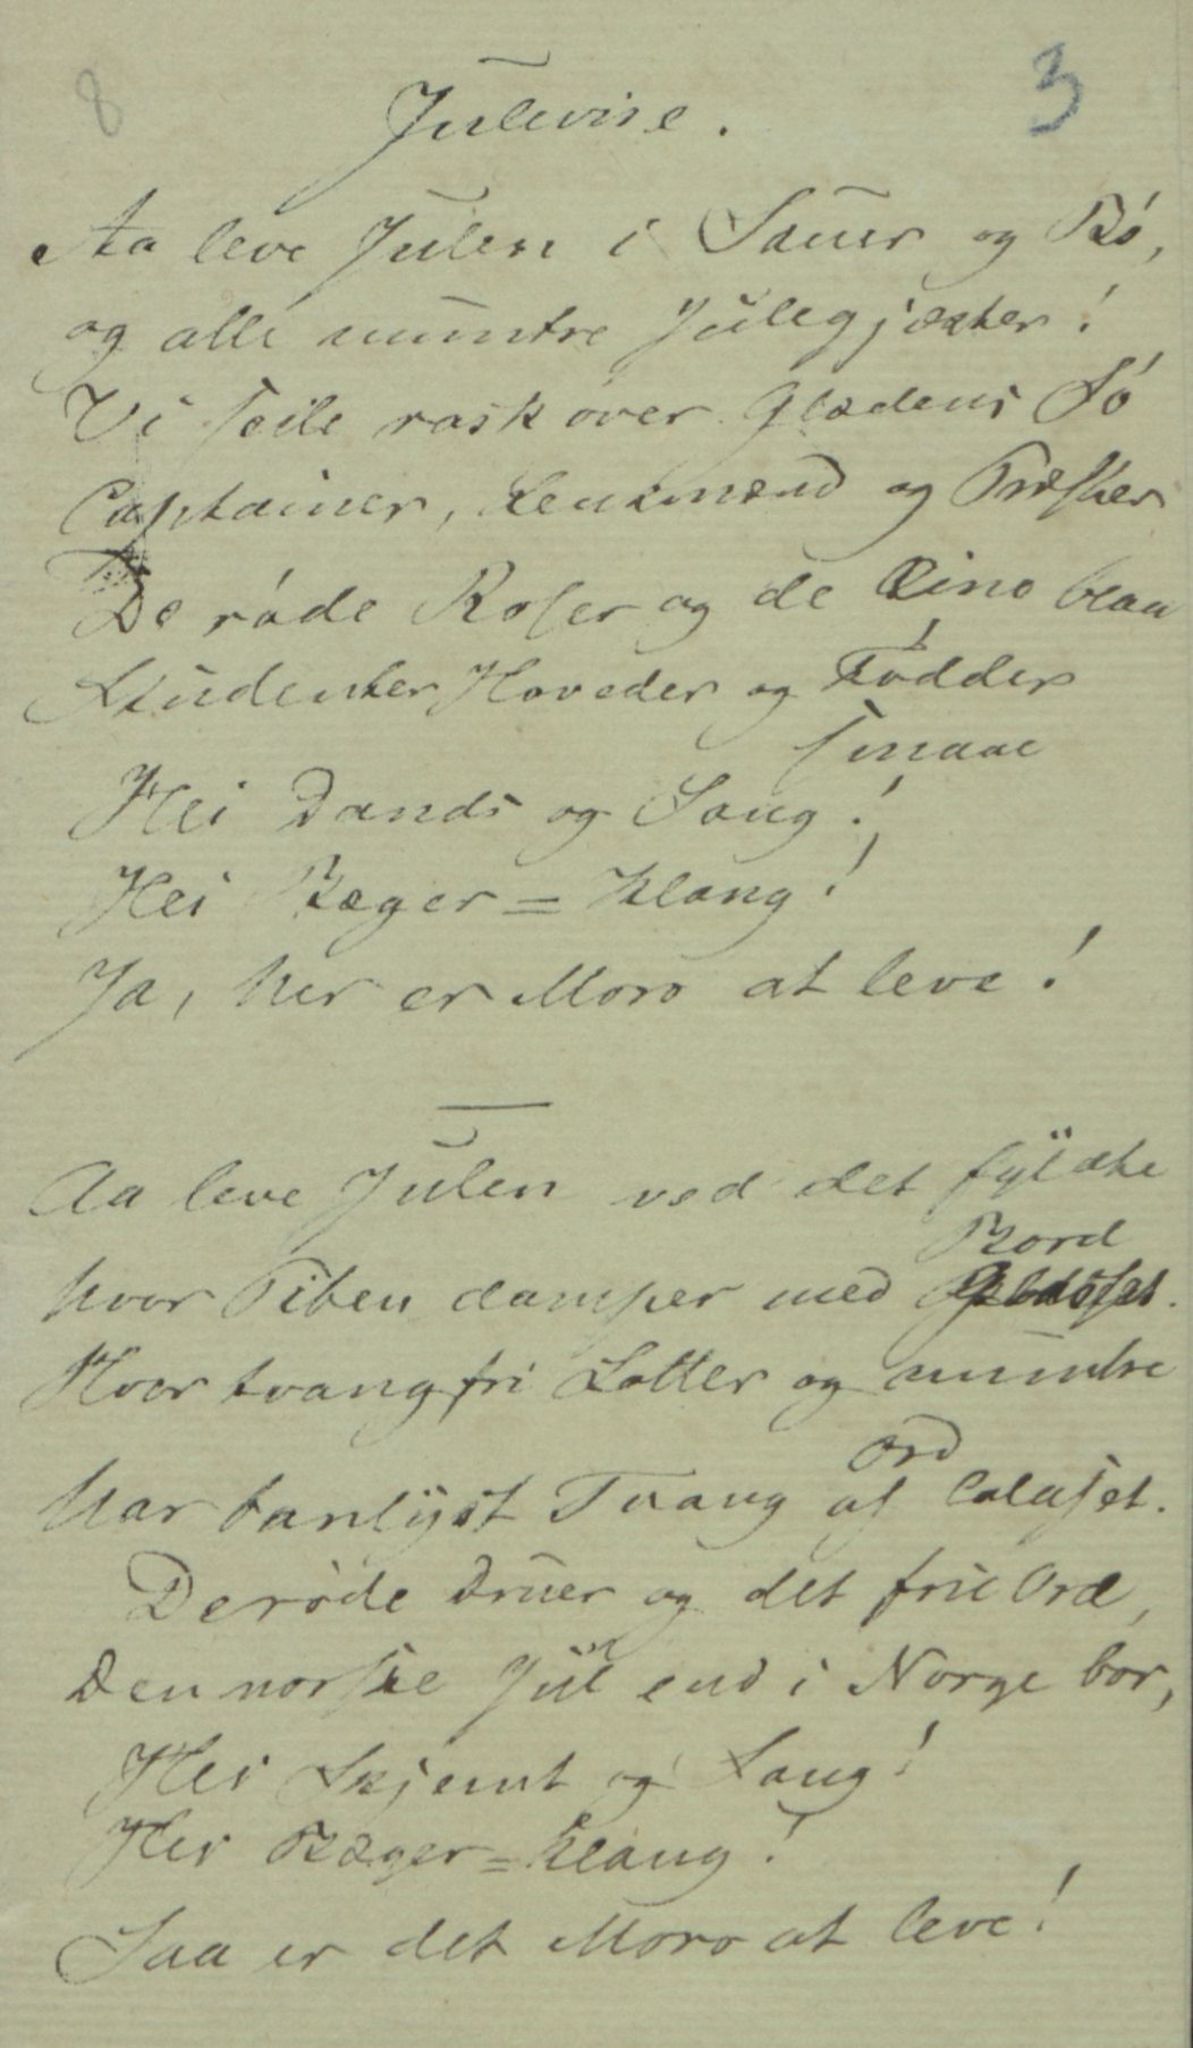 8
3
Julevise.
Aa leve Julen i Sauer og Bö,
og alle muntre Julegjæster!
Vi seile rask over Glædens Sö
Captainer, Lensmænd og Præster
De röde Roser og de Øine blaa
Studenter Hoveder og Födder
smaae
Hei Dands og Sang!
Hei Bæger=klang!
Ja, her er Moro at leve!
Aa leve Julen ved det fyldte
Bord
hvor Piben damper med
Hvor tvangfri Latter og muntre
Ord
har banlyst Tvang af Calaset.
De røde Druer og det frie Ord,
Den norske Jul end i Norge bor,
Hei Skjemt og Sang!
Hei Bæger=klang!
Saa er det Moro at leve!